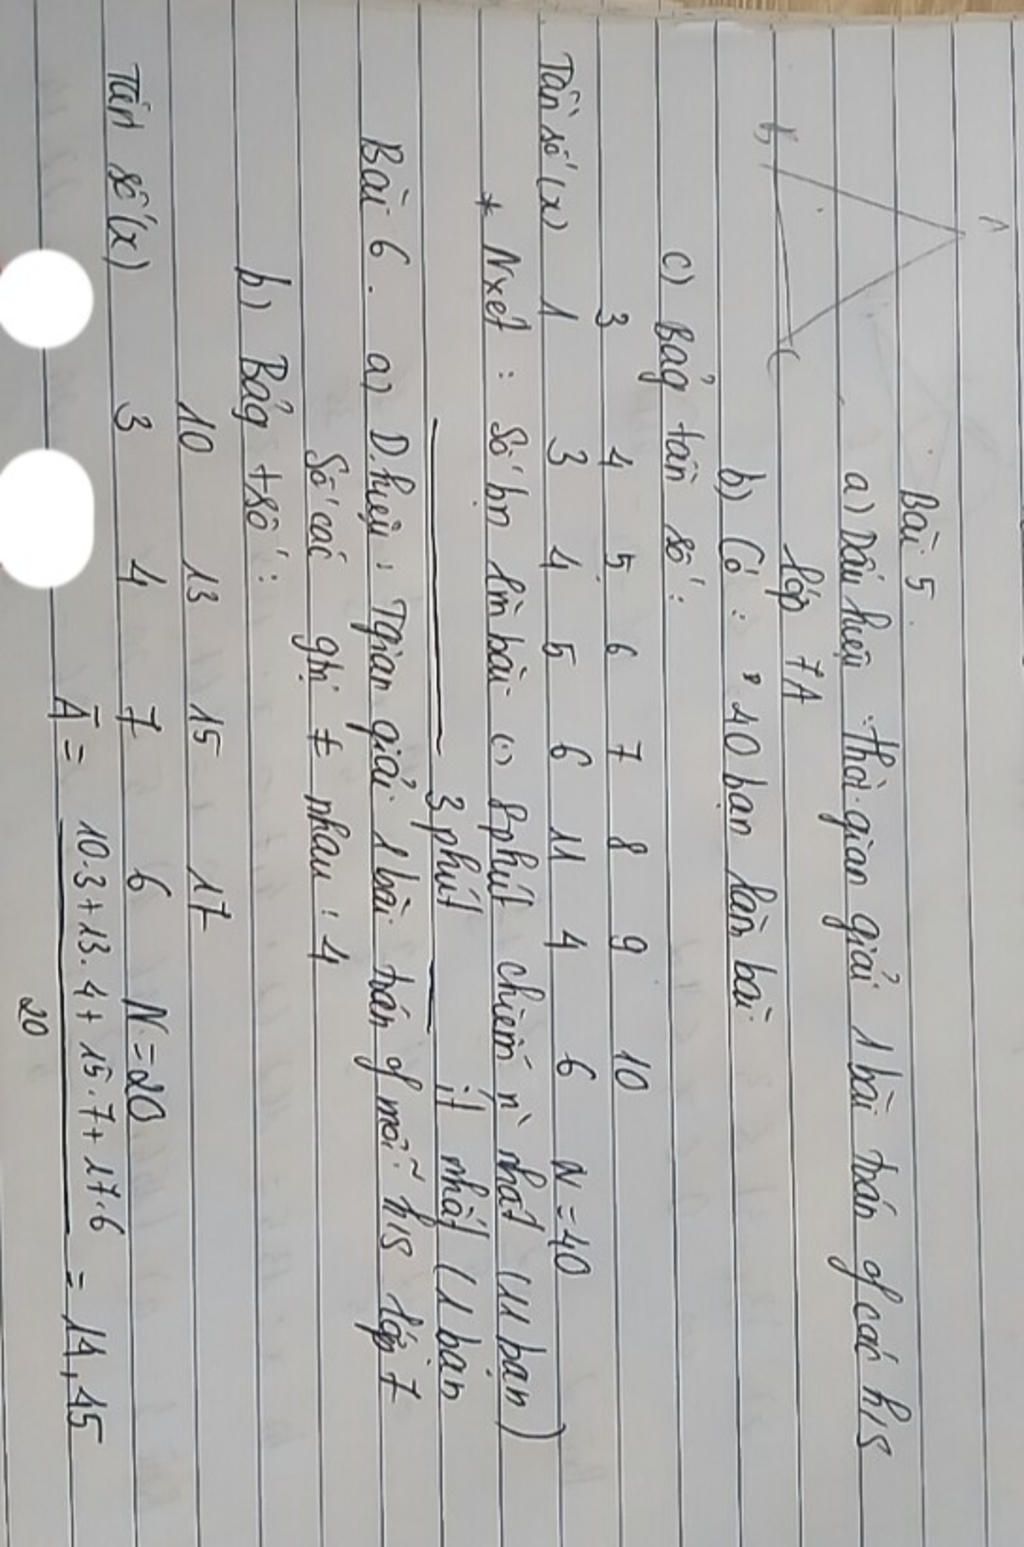 Bài 5.
a) Dấu hiệu : Thời gian giải 1 bài toán of các h/s
lớp 7A
b) Có : 40 bạn làm bài
c) Bảg tần số :
3 4 5 6 7 8 9 10
Tần số (x) 1 3 4 5 6 11 4 6 N = 40
* Nxét : Số bn làm bài 8 phút chiếm n` nhất (11 bạn)
3 phút ít nhất (1 bạn
Bài 6. a) D.hiệu : Tgian giải 1 bài toán of mỗi h/s lớp 7
Số các gtrị ≠ nhau : 4
b) Bảg t số :
10 13 15 17
Tần số (x) 3 4 7 6 N = 20
A̅ = 10.3 + 13.4 + 15.7 + 17.6 = 14,45
20
A
B
C